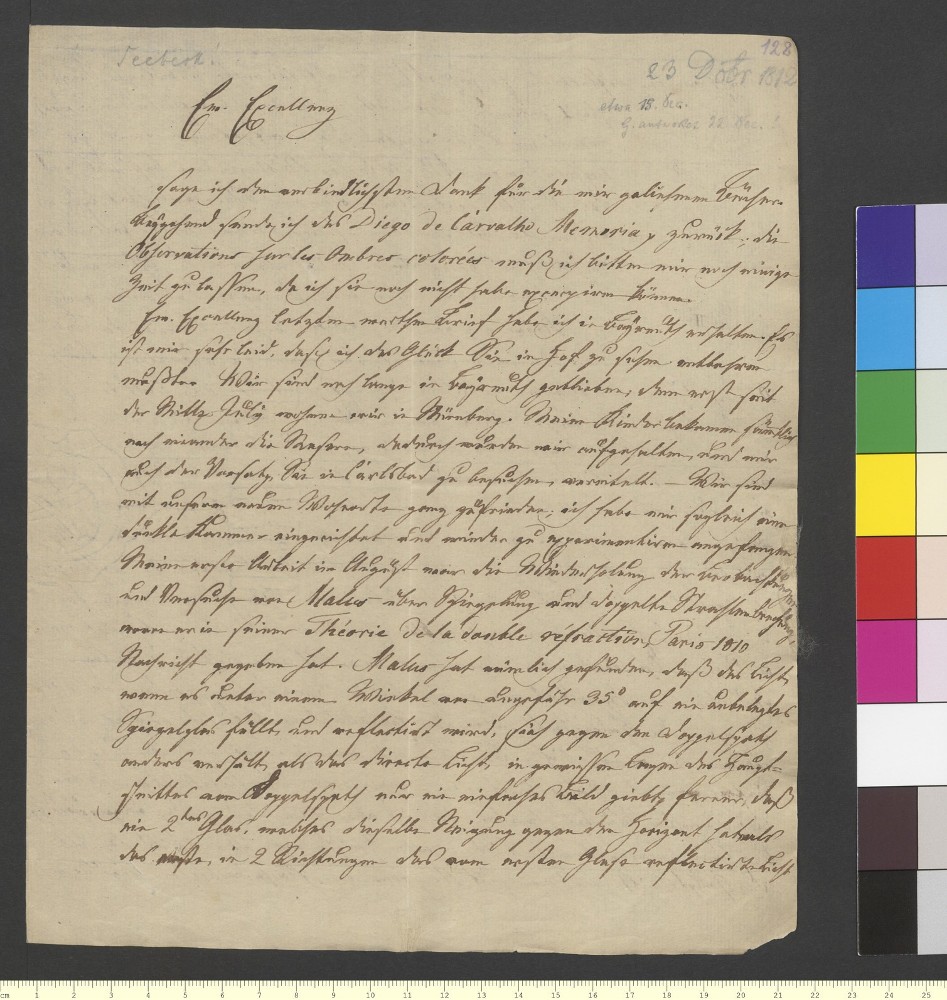 128
Seebeck!
23 Dcbr 1812
etwa 18. Dec.
G. antwortet 22 Dec. !
Ew. Excellenz
sage ich den verbindlichsten Dank für die mir geliehenen Bücher.
Beygehend sende ich des Diego de Carvalho Memoria, zurück; die
Observations sur les Ombres colorées muß ich bitten mir noch einige
Zeit zu lassen, da ich sie noch nicht habe excerpiren können.
Ew. Excellenz letzten werthen Brief habe ich in Bayreuth erhalten. Es
ist mir sehr leid, dass ich das Glück Sie in Hof zu sehen entbehren
mußte. Wir sind noch lange in Bayreuth geblieben, denn erst seit
der Mitte July wohnen wir in Nürnberg. Meine Kinder bekamen sämtlich
nach einander die Masern, dadurch wurden wir aufgehalten, und mir
auch der Vorsatz, Sie in Carlsbad zu besuchen, vereitelt. – Wir sind
mit unserm neuen Wohnorte ganz zufrieden; ich habe mir sogleich eine
dunkle Kammer eingerichtet und wieder zu experimentiren angefangen
Meine erste Arbeit im August war die Wiederholung der Beobachtungen
und Versuche von Malus über Spiegelung und doppelte Strahlenbrechung,
wovon er in seiner Théorie de la double réfraction, Paris 1810
Nachricht gegeben hat. Malus hat nämlich gefunden, daß das Licht,
wenn es unter einem Winkel von ungefähr 35° auf ein unbelegtes
Spiegelglas fällt und reflectirt wird, sich gegen den Doppelspath
anders verhält, als das directe Licht, in gewissen Lagen des Haupt-
schnittes vom Doppelspath nur ein einfaches Bild giebt, ferner, daß
ein 2tes Glas, welches dieselbe Neigung gegen den Horizont hat als
das erste, in 2 Richtungen das vom ersten Glase reflectirte Licht